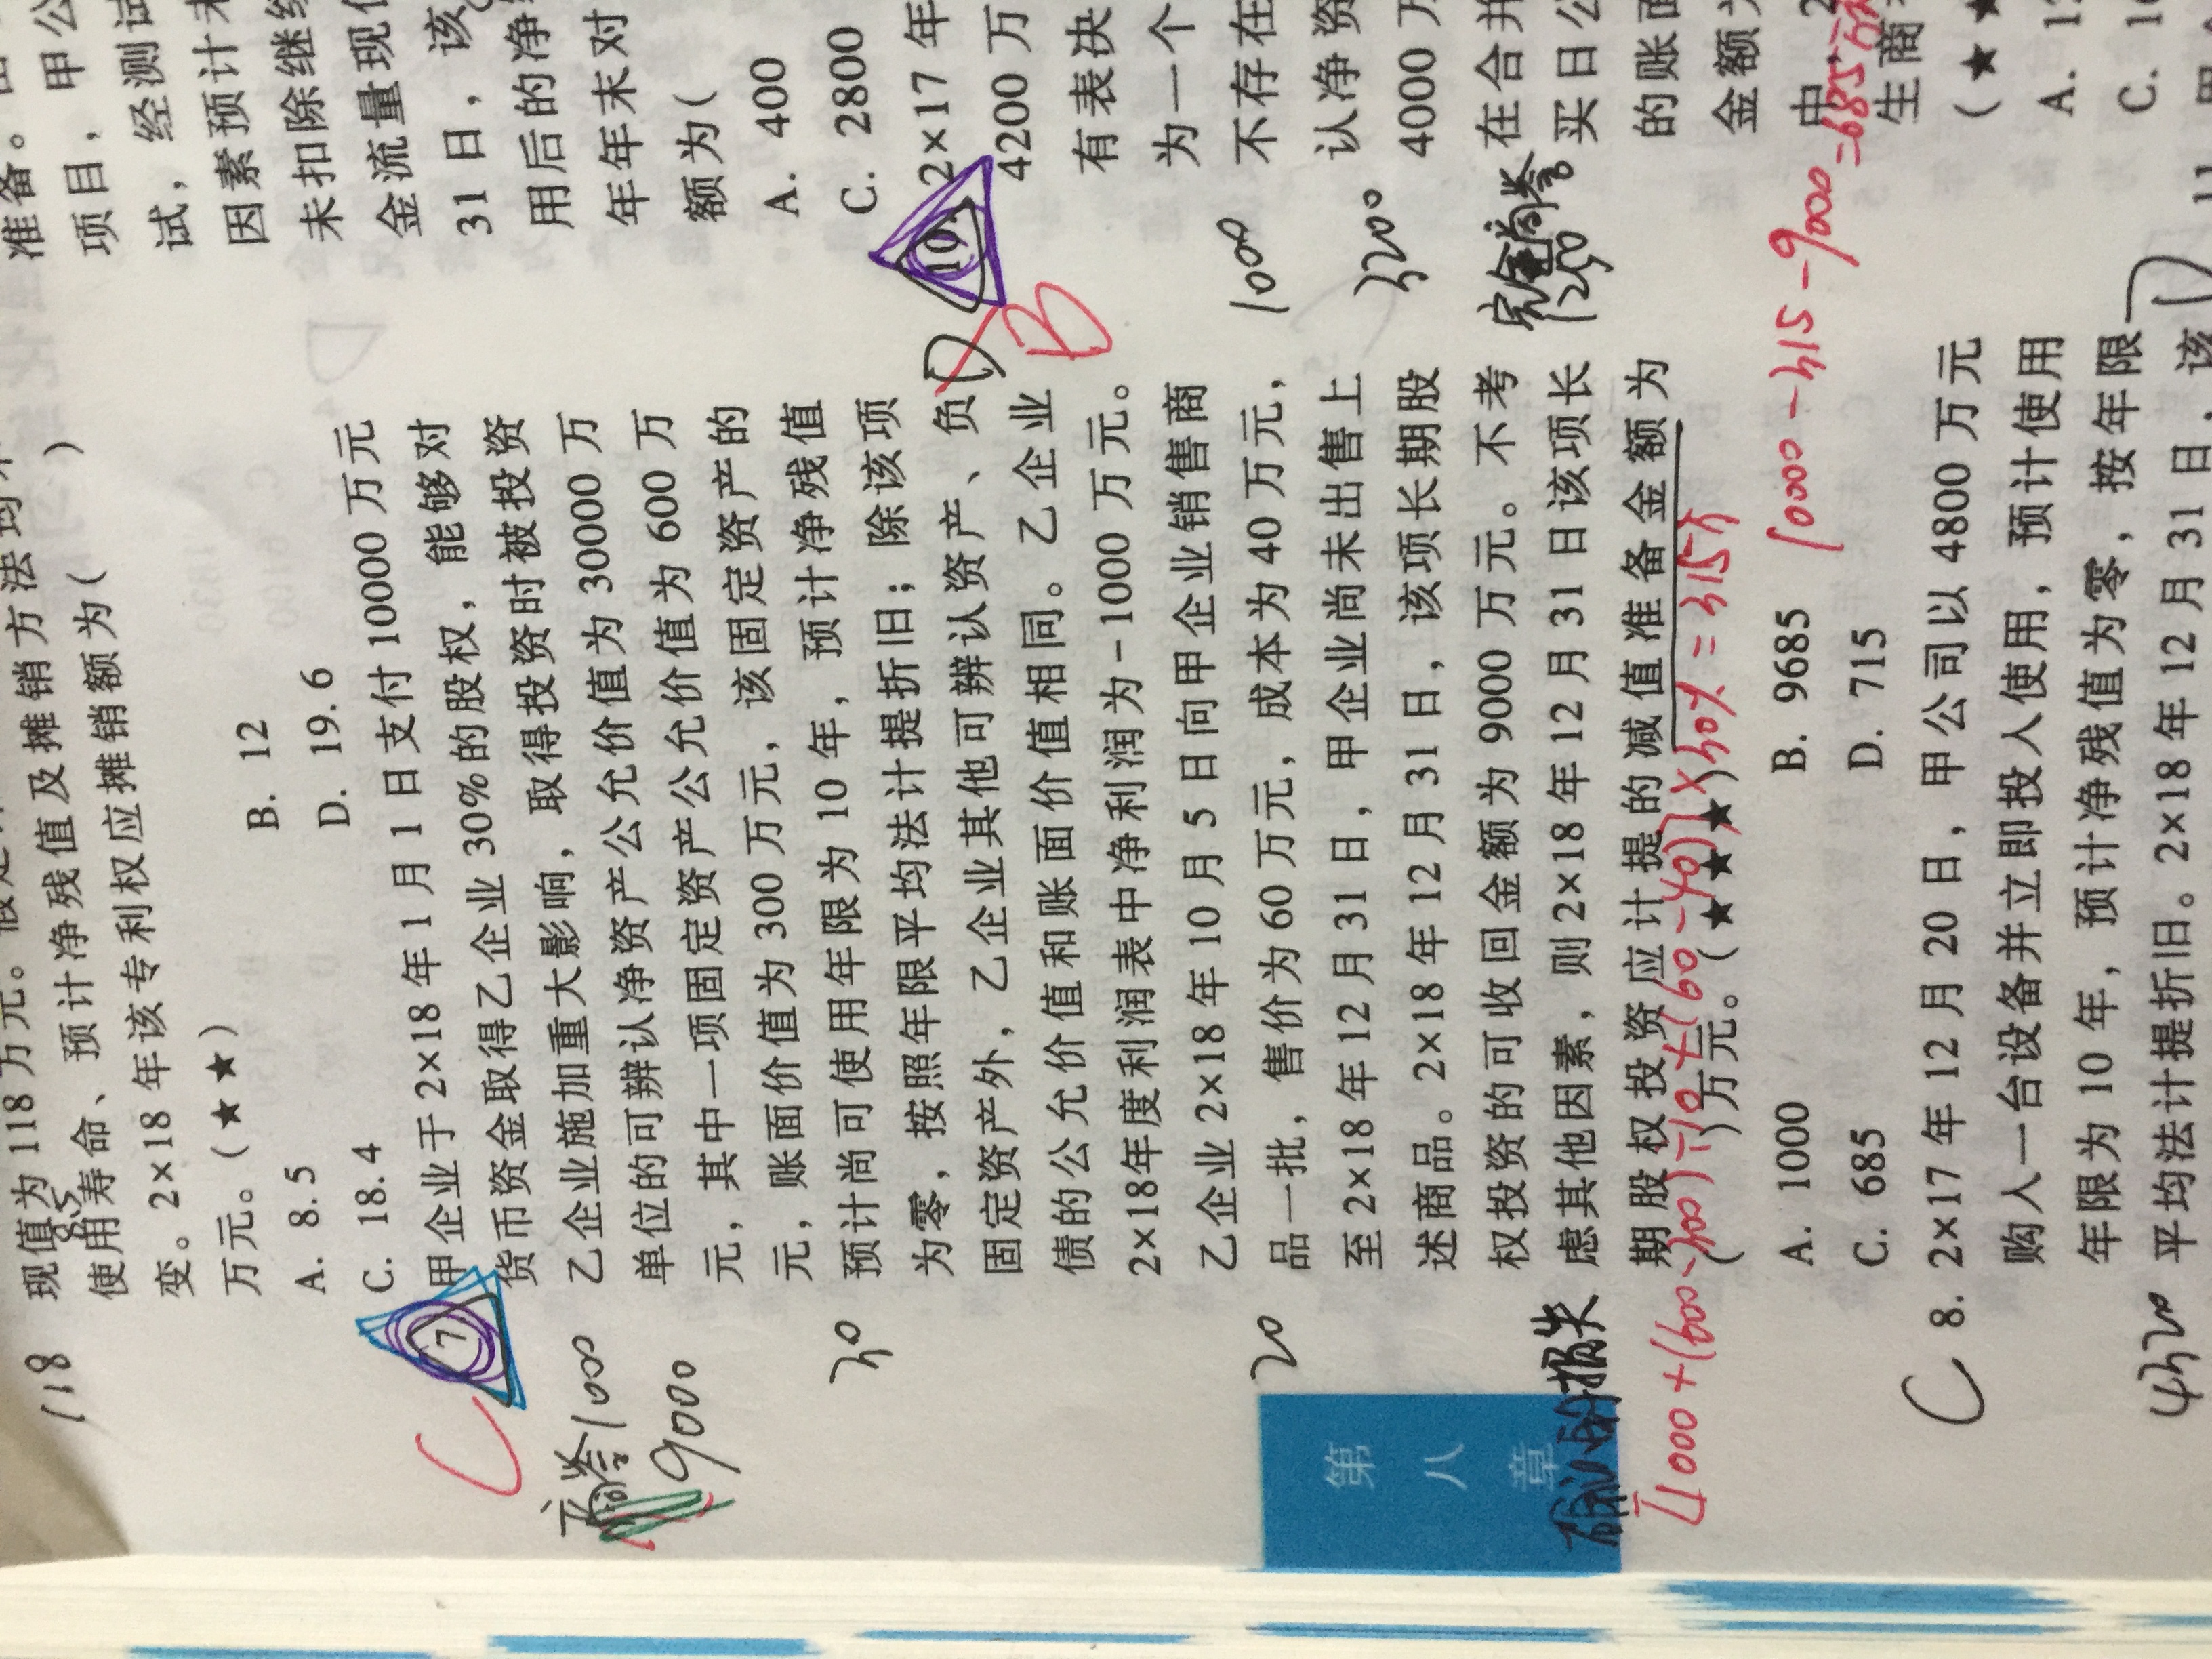 118
现值为118万元。
8.5
使用寿命、预计净残值及摊销方法均不
变。2×18年该专利权应摊销额为(  )
万元。(★★)
A. 8.5  B. 12
C. 18.4  D. 19.6
C
7
甲企业于2×18年1月1日支付10000万元
货币资金取得乙企业30%的股权，能够对
乙企业施加重大影响，取得投资时被投资
单位的可辨认净资产公允价值为30000万
元，其中一项固定资产公允价值为600万
元，账面价值为300万元，该固定资产的
预计尚可使用年限为10年，预计净残值
为零，按照年限平均法计提折旧；除该项
固定资产外，乙企业其他可辨认资产、负
债的公允价值和账面价值相同。乙企业
2×18年度利润表中净利润为-1000万元。
乙企业2×18年10月5日向甲企业销售商
品一批，售价为60万元，成本为40万元，
至2×18年12月31日，甲企业尚未出售上
述商品。2×18年12月31日，该项长期股
权投资的可收回金额为9000万元。不考
虑其他因素，则2×18年12月31日该项长
期股权投资应计提的减值准备金额为
(  )万元。(★★★)
商誉1000
9000
30
20
确认的损失
[1000+(600-300)÷10+(60-40)]×30%=315万
A. 1000  B. 9685
C. 685  D. 715
10000-315-9000=685万
C
8. 2×17年12月20日，甲公司以4800万元
购入一台设备并立即投入使用，预计使用
年限为10年，预计净残值为零，按年限
平均法计提折旧。2×18年12月31日，该
4320
第八章
准备。
项目，甲公
试，经测试
因素预计未
未扣除继续
金流量现值
31日，该
用后的净
年年末对
额为(
A. 400
C. 2800
10.
2×17年
4200万
有表决
为一个
不存在
认净资
4000万
在合并
买日公
的账面
金额为
中，2
生商
(★★
A. 1
C. 1
D
B
1000
3200
完全商誉
1250
D